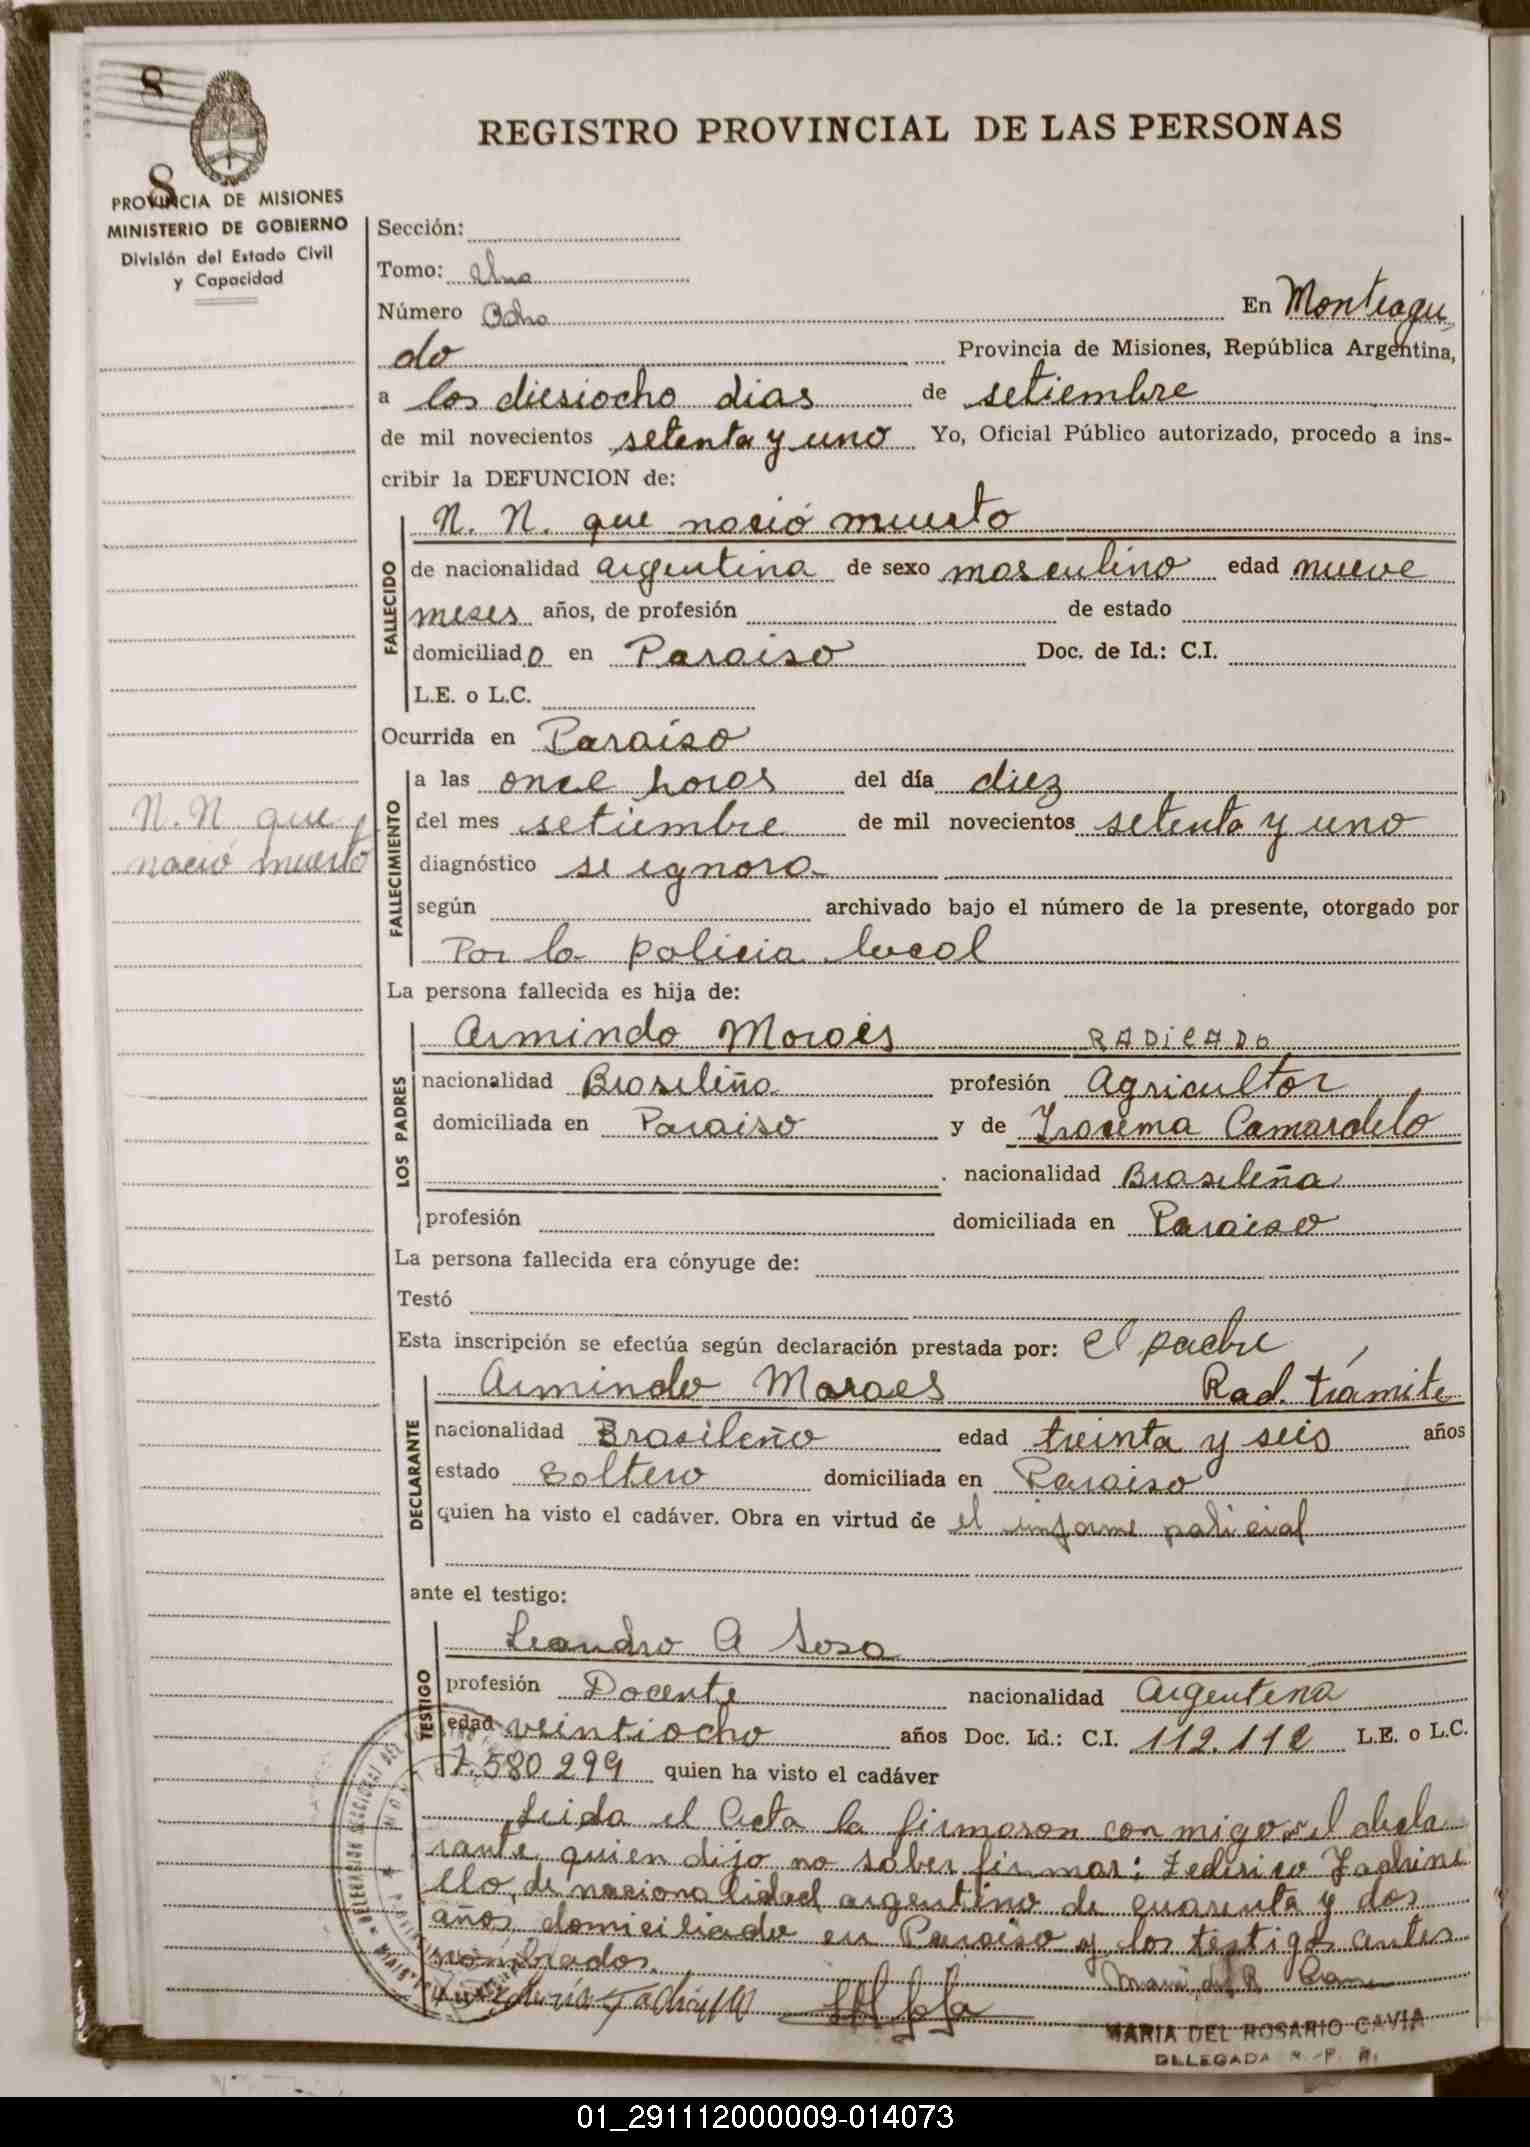 8
8
REGISTRO PROVINCIAL DE LAS PERSONAS
PROVINCIA DE MISIONES
MINISTERIO DE GOBIERNO
División del Estado Civil
y Capacidad
Sección:
Tomo: Uno
Número Ocho En Monteagu
do Provincia de Misiones, República Argentina,
a los diesiocho dias de setiembre
de mil novecientos setenta y uno Yo, Oficial Público autorizado, procedo a ins-
cribir la DEFUNCION de:
N. N. que nació muerto
FALLECIDO
de nacionalidad argentina de sexo masculino edad nueve
meses años, de profesión de estado
domiciliado en Paraiso Doc. de Id.: C.I.
L.E. o L.C.
Ocurrida en Paraiso
FALLECIMIENTO
a las once horas del día diez
del mes setiembre de mil novecientos setenta y uno
N. N. que
nació muerto
diagnóstico se ignora
según archivado bajo el número de la presente, otorgado por
Por la policia local
La persona fallecida es hija de:
LOS PADRES
Armindo Moraes RADICADO
nacionalidad Brasileña profesión Agricultor
domiciliada en Paraiso y de Iracema Camardelo
nacionalidad Brasileña
profesión domiciliada en Paraiso
La persona fallecida era cónyuge de:
Testó
Esta inscripción se efectúa según declaración prestada por: el padre
DECLARANTE
Armindo Moraes Rad. trámite
nacionalidad Brasileño edad treinta y seis años
estado Soltero domiciliada en Paraiso
quien ha visto el cadáver. Obra en virtud de el informe policial
ante el testigo:
TESTIGO
Leandro A Sosa
profesión Docente nacionalidad Argentina
edad veintiocho años Doc. Id.: C.I. 112.112 L.E. o L.C.
7.580299 quien ha visto el cadáver
Leida el Acta la firmaron con migo el decla
rante quien dijo no saber firmar; Federico
llo, de nacionalidad argentino de cuarenta y dos
años domiciliado en Paraiso y los testigos antes
nombrados.
MARIA DEL ROSARIO CAVIA
DELEGADA R. P. P.
01_291112000009-014073